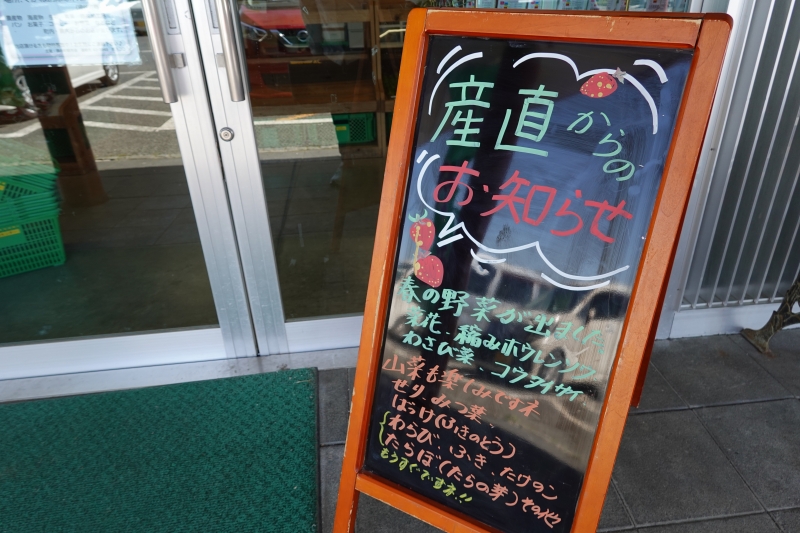 産直からの
お知らせ
春の野菜が出ました
菜花、縮みホウレンソウ
わさび菜、コウタイサイ
山菜も楽しみですネ
せり、みつ葉、
ばっけ(ふきのとう)
わらび、ふき、たけのこ
たらぼ(たらの芽)その他
もうすぐですネ!!